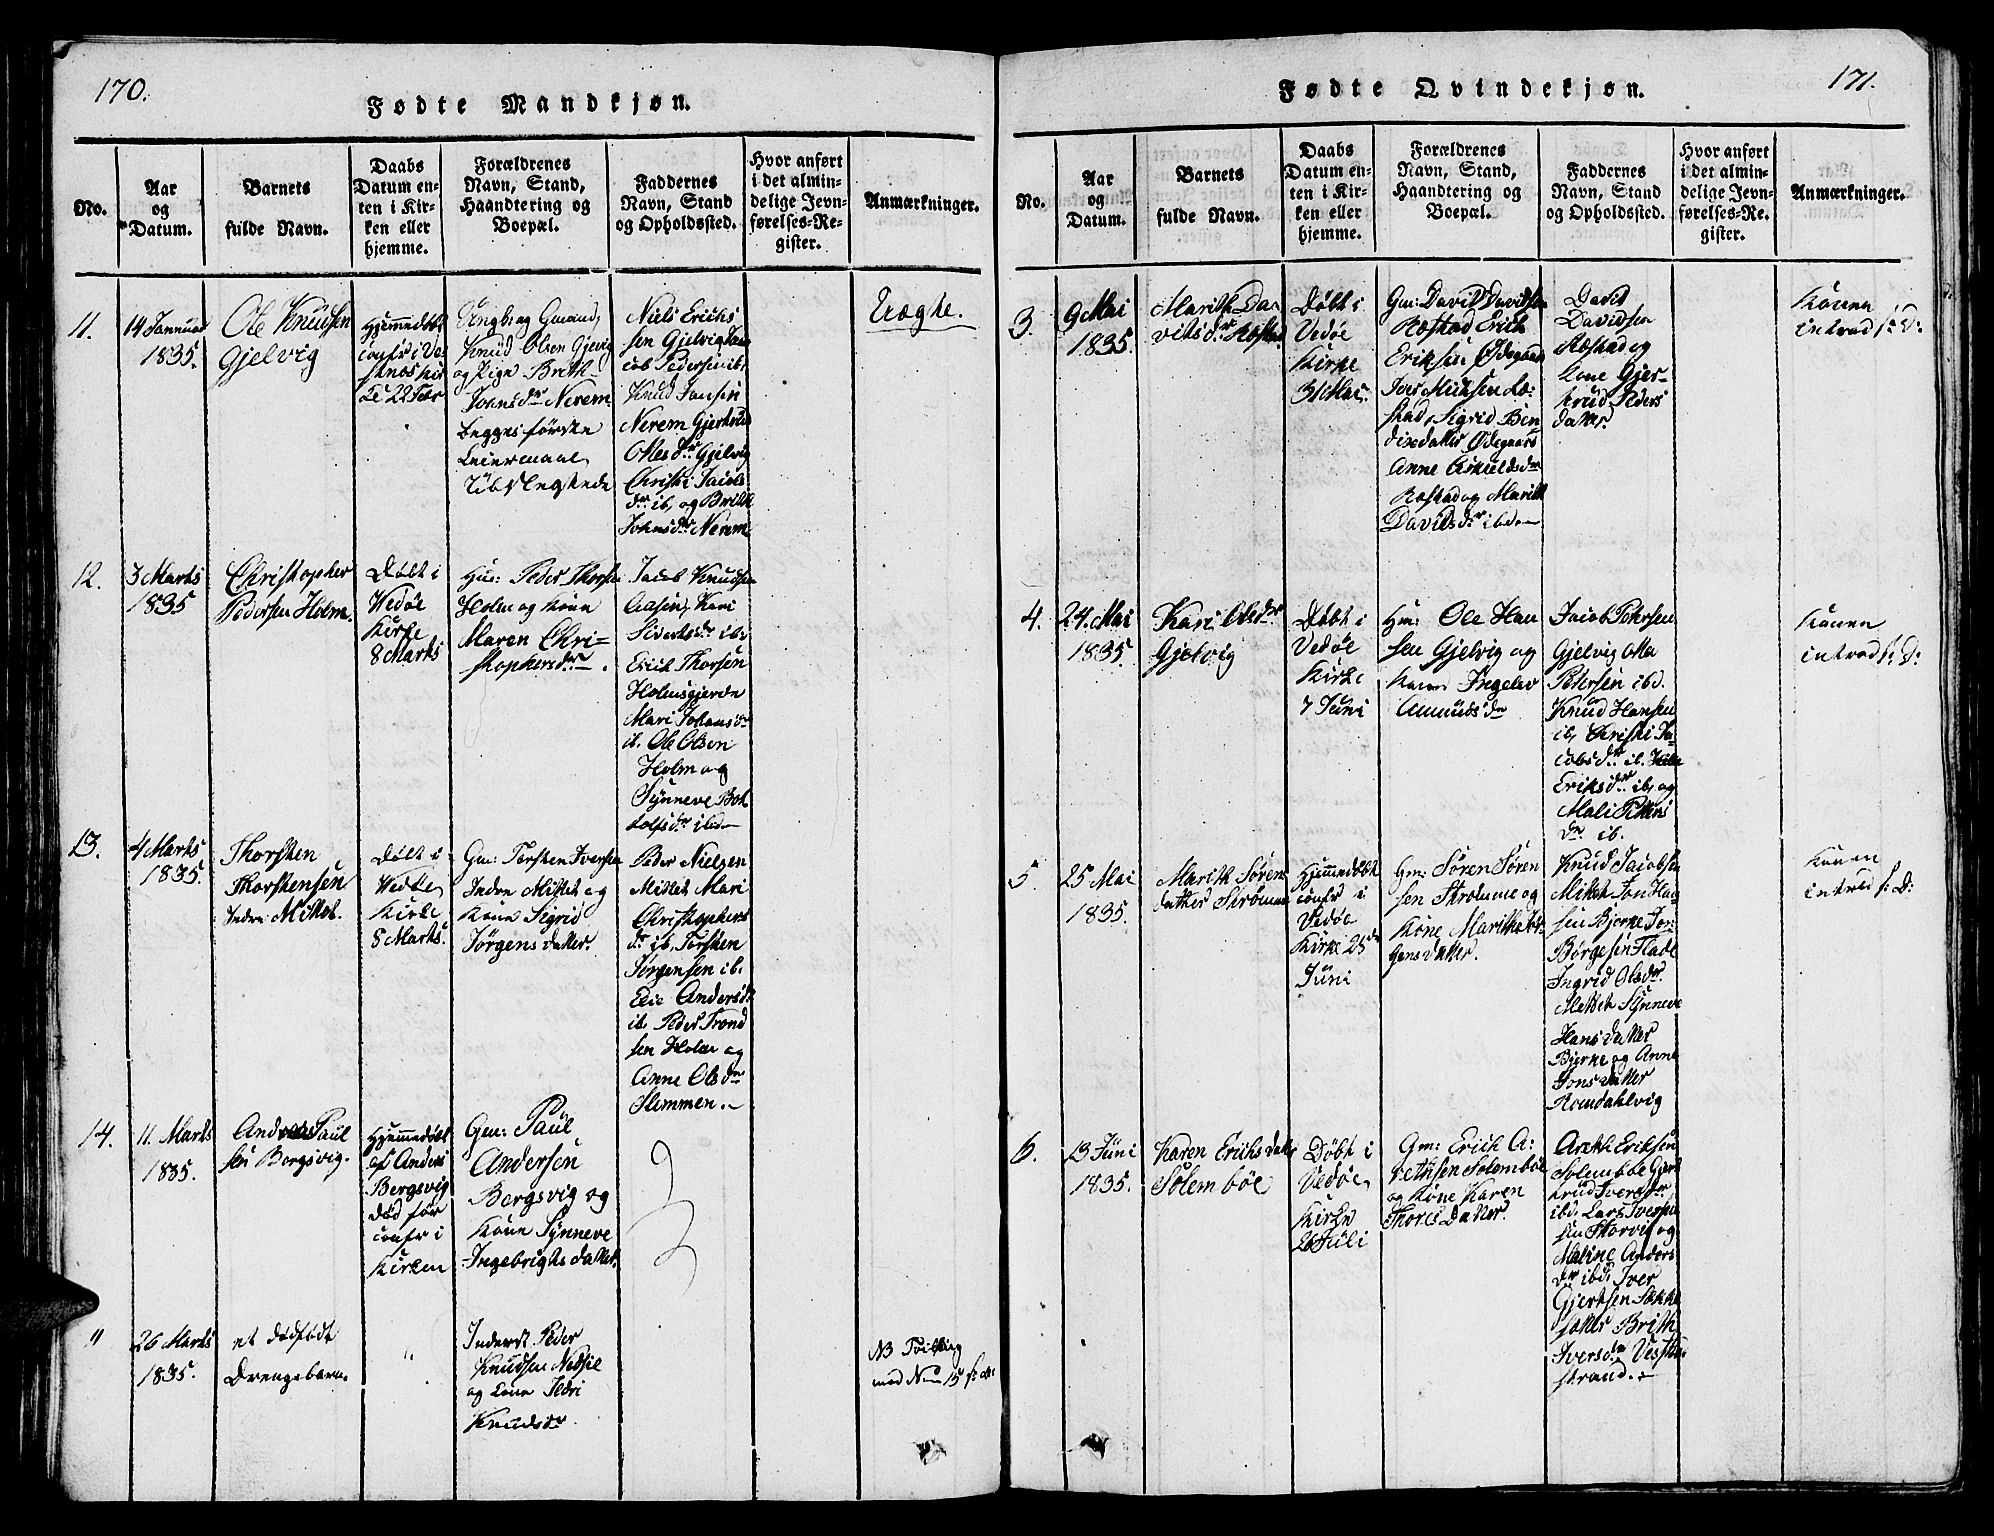 170.
Fødte Mandkjøn.
No.
Aar
og
Datum.
Barnets
fulde Navn.
Daabs
Datum en-
ten i Kir-
ken eller
hjemme.
Forældrenes
Navn, Stand,
Haandtering og
Boepæl.
Faddernes
Navn, Stand
og Opholdssted.
Hvor anført
i det almin-
delige Jevn-
førelses-Re-
gister.
Anmærkninger.
11.
14 Januar
1835.
Ole Knudsen
Gjelvig
Hjemmedøbt
confr i Ve-
stnæs Kir
ke 22 Febr
Ungk og Gmand,
Knud Olsen Gjelvig
og Pige Brith
Johnsdr Nerem
begges første
Leiermaal
Niels Erichs
sen Gjelvig Jac
cob Pedersen ib,
Knud Jansen
Nerem Gjertrud
Olesdr Gjelvig
Christi Jacobs
dr ib, og Brith
Johnsdr Nerem
Uægte.
12.
3 Marts
1835
Christopher
Pedersen Holm.
Døbt i
Wedøe
Kirke
8 Marts
Hus: Peder Thorsen
Holm og Kone
Maren Chri-
stophersdr.
Jacob Knudsen
Aasen, Kari
Sivertsdr ib.
Erich Thorsen
Holmsgjerde
Mari Johansdr
ib. Ole Olsen
Holm og
Synneve Bot
tolfsdr ibd
13.
4 Marts
1835.
Thorsten
Thorstensen
Indre Mittet.
Døbt i
Kirke
8 Marts.
Gm: Torsten Iversen
Indre Mittet og
Kone Sigrid
Jørgensdatter.
Peder Nielsen
Mittet Mari
Christophers
dr ib, Torsten
Jørgensen ib.
Andersdr
ib. Peder Trond
sen Holm og
Anne Olsdr
Slemmen.
14.
11. Marts
1835.
Andreas Paul
sen Borgsvig.
Hjemmedøbt
af Anders
Bergsvig
død før
confr i
Kirken
Gm: Paul
Andersen
Borgsvig og
Kone Synneve
Ingebrigtsdatter.
"
26 Marts
1835.
et dødfødt
Drengebarn.
"
Inderst Peder
Knudsen
og Kone Ildri
Knudsdr
NB Tvilling
med Num 15
171.
Fødte Qvindekjøn.
No.
Aar
og
Datum.
Barnets
fulde Navn.
Daabs
Datum en-
ten i Kir-
ken eller
hjemme.
Forældrenes
Navn, Stand,
Haandtering og
Boepæl.
Faddernes
Navn, Stand
og Opholdssted.
Hvor anført
i det almin-
delige Jevn-
førelses-Re-
gister.
Anmærkninger.
3.
9 Mai
1835.
Marith Da
vidsdr Røstad
Døbt i
Vedøe
Kirke
31 Mai.
Gm: David Davidsen
Røstad Erich
Eriksen Ødegaard
Røstad, Sigrid Ben
dixdatter Ødegaard
Anne
Røstad og Marith
Davidsdr ibd
David
Davidsen
Røstad og
Kone Gjer-
trud Peders
datter
Konen
introd s: D:
4.
24. Mai
1835.
Kari Olsdr
Gjelvig
Døbt i
Vedøe
Kirke
7 Juni
Hm: Ole Han
sen Gjelvig og
Kone Ingelev
Amundsdr
Jacob Petersen
Gjelvig
Petersen ibd.
Knud Hansen
ib, Christi Ja-
cobsdr ib.
Eriksdr ib, og
Mali Peters
dr ib.
Konen
introd s: D:
5
25 Mai
1835.
Marith Søren
datter Strømme
Hjemmedøbt
confr i
Vedøe
Kirke 25de
Juni
Gm: Søren Søren
sen Strømme og
Kone Marith Jør-
gensdatter.
Knud Jacobsen
Mittet Jon Han
sen Bjerke Jon
Børgesen Flade
Ingrid Olsdr.
Mittet Synneve
Hansdatter
Bjerke og Anne
Jonsdatter
Romdahlvig
Konen
introd s: D:
6.
13 Juni
1835.
Karen Erichsdatter
Solembøe
Døbt i
Vedøe
Kirke
26 Juli
Gm: Erich A:
Solembøe
og Kone Karen
Thoresdatter.
Eriksen
Solembøe Gjert
trud Iversdr
ibd. Lars Iversen
og
Maline Anders
dr ibd. Iver
Gjertsen
Brith
Iversdr Vestre
strand.